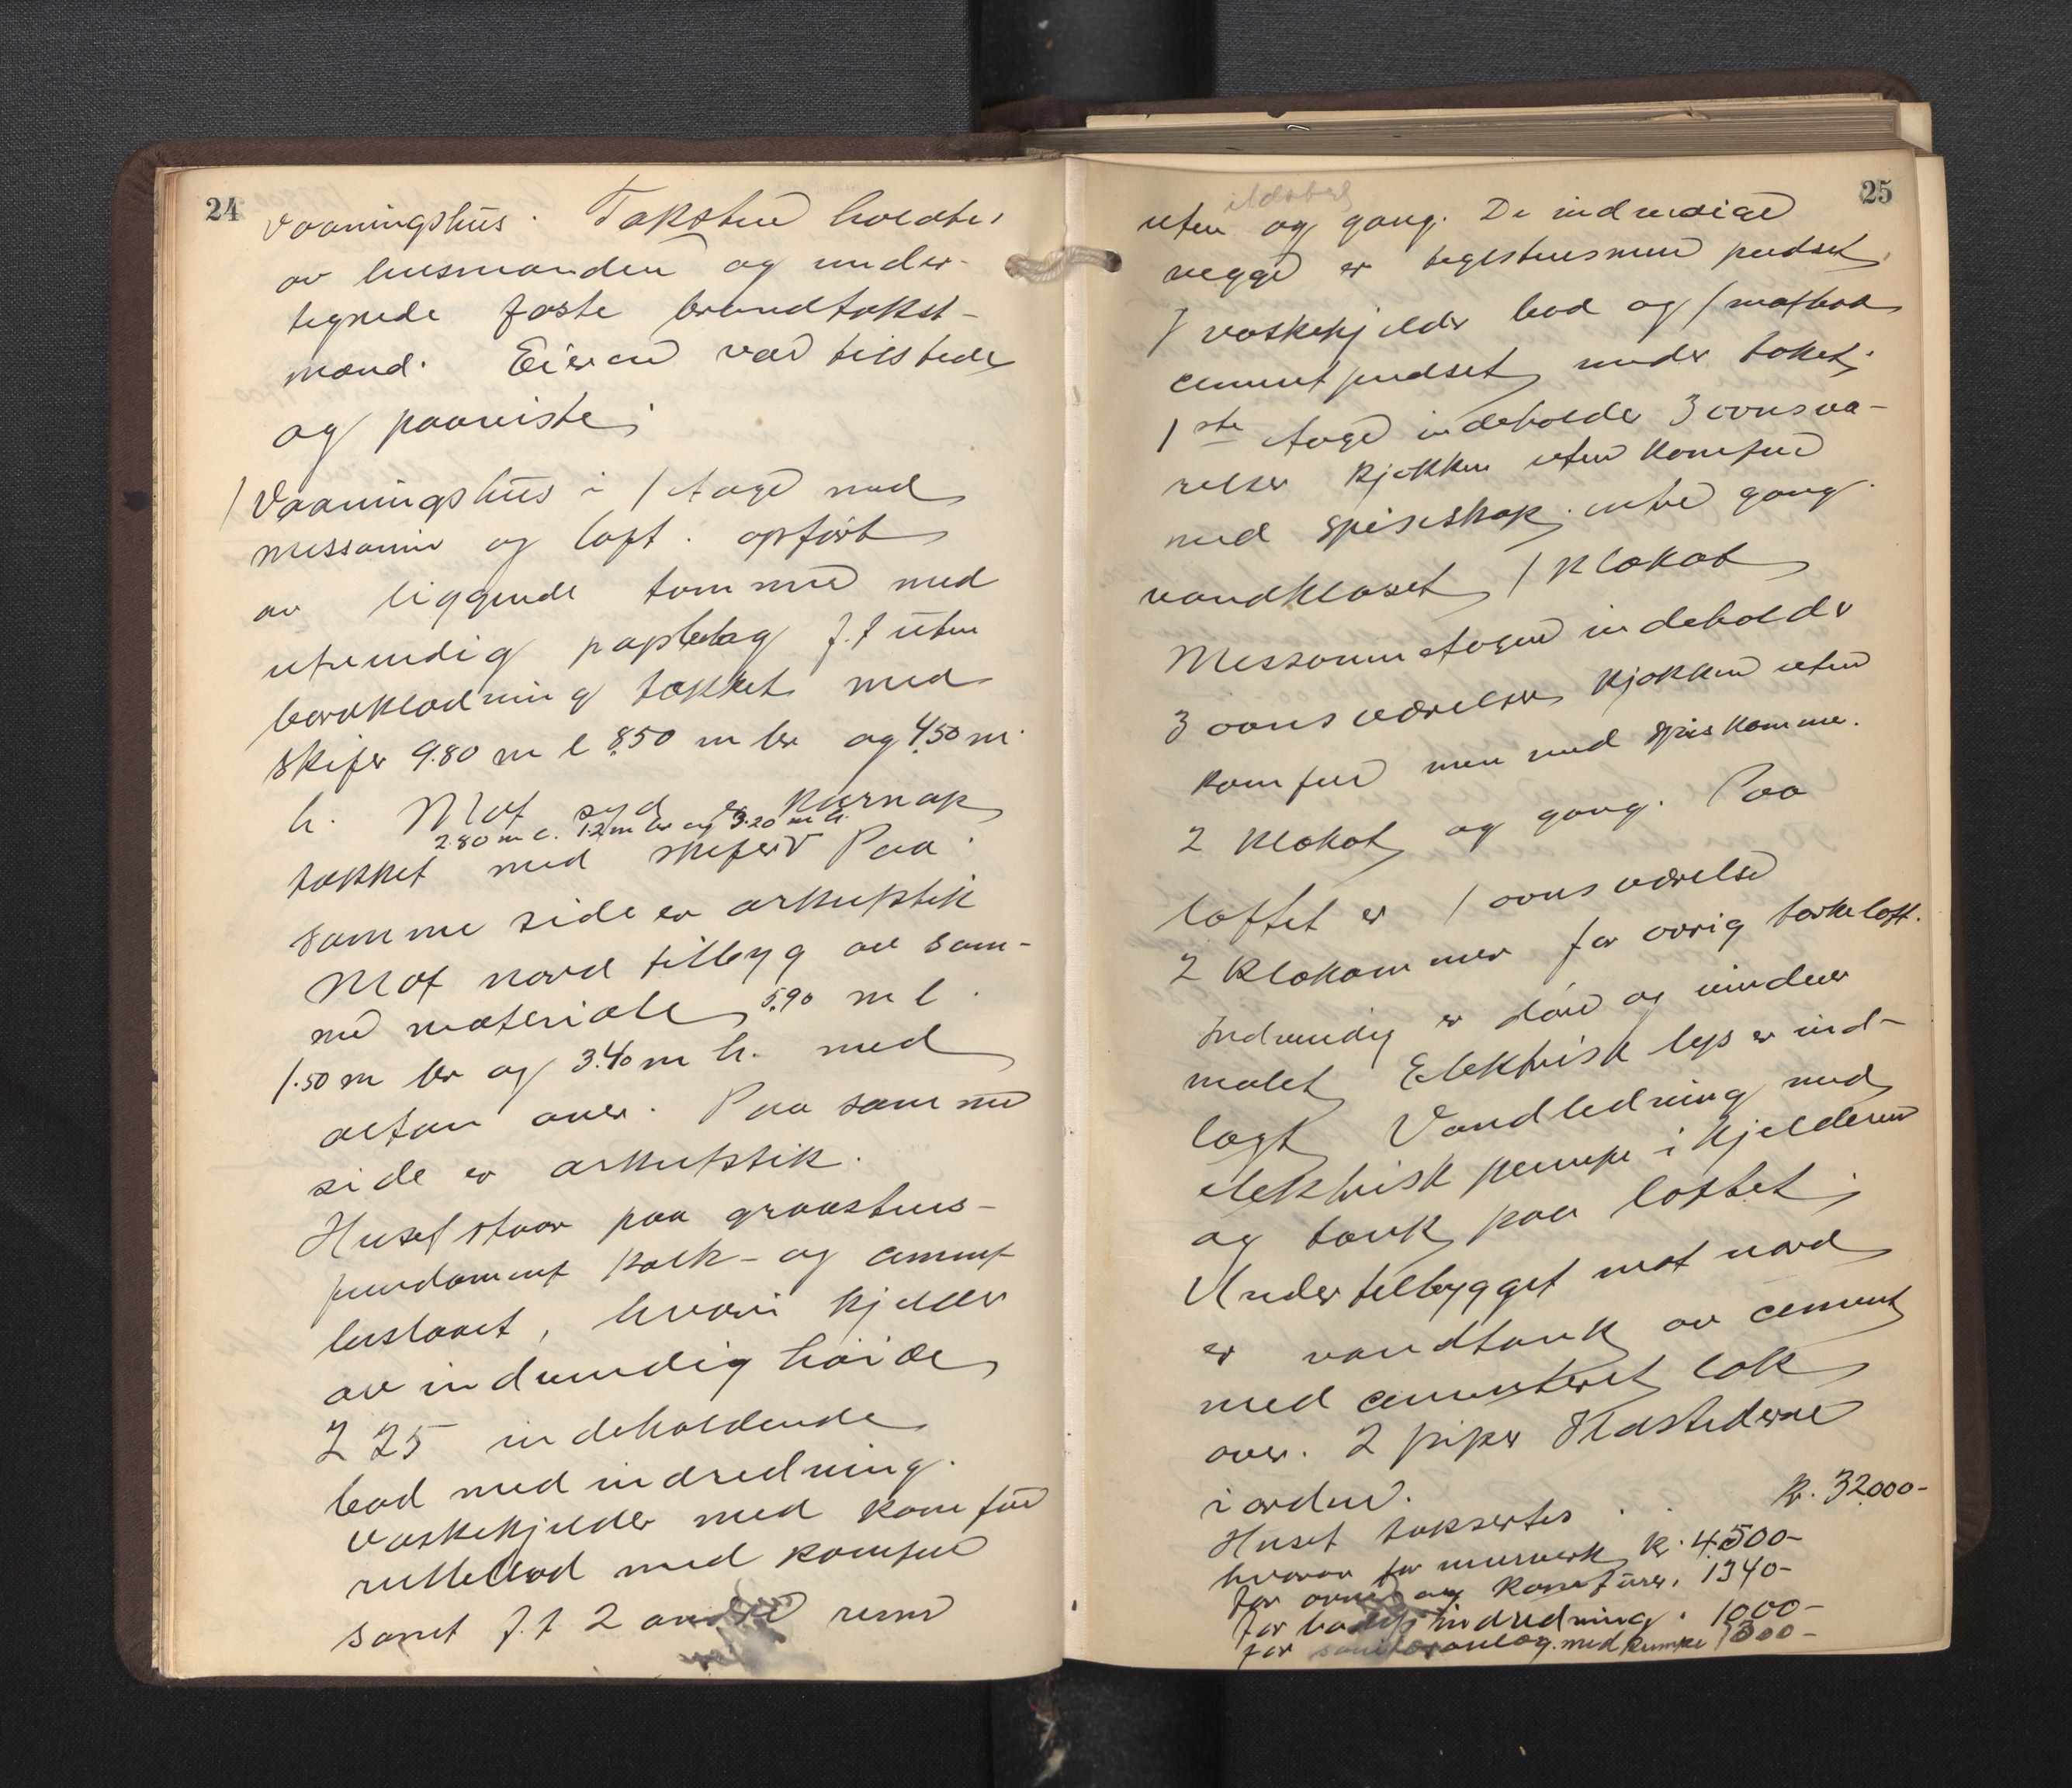 24
Vaaningshus. Taksten holdtes
av lensmanden og under-
tegnede faste brandtakst-
mænd. Eieren var tilstede
og paaviste;
1 Vaaningshus i 1 etage med
messanin og loft. opført
av liggende tømmer med
utvendig papbelæg f.t uten
bordklædning tækket med
skifer 9.80 m l 8.50 m br og 4.50 m
h. Mot syd er karnap
2.80 m l. 1.2 m br og 3.20 m h.
tækket med skifer. Paa
samme side er arkuptik
Mot nord tilbyg av sam-
me materiale 5.90 m l.
1.50 m br og 3.40 m h. med
altan over. Paa samme
side er arkuptik.
Huset staar paa graastens-
fundament kalk- og cement
beslaaet, hvori kjelder
av indvendig høide
2 25 indeholdende
bad med indredning.
vaskekjelder med komfur
rullebod med komfur
samt f.t 2 andre rum
25
ildsted
uten og gang. De indvendige
vegger er teglstensmur pudset
I vaskekjelder bad og 1 matbod
cementpudset under taket.
1ste etage indeholder 3 ovnsvæ-
relser kjøkken uten komfur
med spiseskap. entre gang
vandkloset 1 klækot
Messanin etagen indeholder
3 ovnsværelser kjøkken uten
komfur men med spiskammer.
2 klækot og gang. Paa
loftet er 1 ovnsværelse
2 klækammer for øvrig tørkeloft.
Indvendig er døre og vinduer
malet Elektrisk lys er ind-
lagt Vandledning med
elektrisk pumpe i kjelderen
og tank paa loftet.
Under tilbygget mot nord
er vandtank av cement
med cementeret lok
over. 2 piper Ildstederne
i orden.
Huset takseres . . kr. 32000-
hvorav for murverk kr. 4500-
for ovner og komfurer. 1340-
for badeindredning. 1000-
for sanitæranlæg. med pumpe 1300-